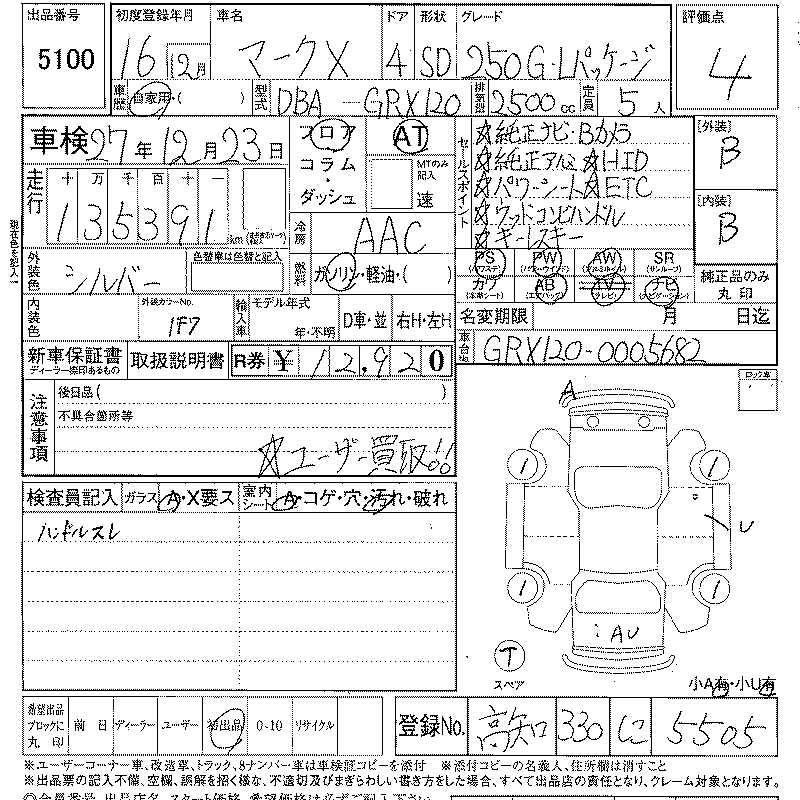 出品番号 初度登録年月 車名 ドア 形状 グレード 評価点
5100 16 12月 マークX 4 SD 250G・Lパッケージ 4
車歴 自家用・( ) 型式 DBA-GRX120 排気量 2500cc 定員 5人
車検 27年12月23日 フロア AT セールスポイント ☆純正ナビ・Bカメラ [外装]
コラム・ MTのみ記入 ☆純正アルミ ☆HID B
走行 十 万 千 百 十 一 ダッシュ 速 ☆パワーシート ☆ETC
135391 km 冷房 AAC ☆ウッドコンビハンドル [内装]
☆キーレスキー B
現在色を記入!
外装色 シルバー 色替車は色替と記入 燃料 ガソリン・軽油・( ) PS PW AW SR
(パワステ) (パワーウインド) (アルミホイル) (サンルーフ) 純正品のみ
カワ AB TV ナビ 丸印
(本革シート) (エアバッグ) (テレビ) (ナビゲーション)
内装色 外装カラーNo. 輸入車 モデル年式 D車・並 右H・左H 名変期限 月 日迄
1F7 年・不明
新車保証書 取扱説明書 R券 ¥12,920 車台No. GRX120-0005682
ディーラー捺印あるもの
注意事項 後日品( ) ロック車
不具合箇所等 A
☆ユーザー買取!!
検査員記入 ガラス A・X要ス 室内シート A・コゲ・穴・汚れ・破れ
ハンドルスレ
1 1
U
1 1
AU
T
スペア 小A有・小U有
希望出品ブロックに丸印 前日 ディーラー ユーザー 初出品 0-10 リサイクル 登録No. 高知 330 に 5505
※ユーザーコーナー車、改造車、トラック、8ナンバー車は車検証コピーを添付 ※添付コピーの名義人、住所欄は消すこと
※出品票の記入不備、空欄、誤解を招く様な、不適切及びまぎらわしい書き方をした場合、すべて出品店の責任となり、クレーム対象となります。
◎会員番号、出品店名、スタート価格、希望価格は必ずご記入下さい。